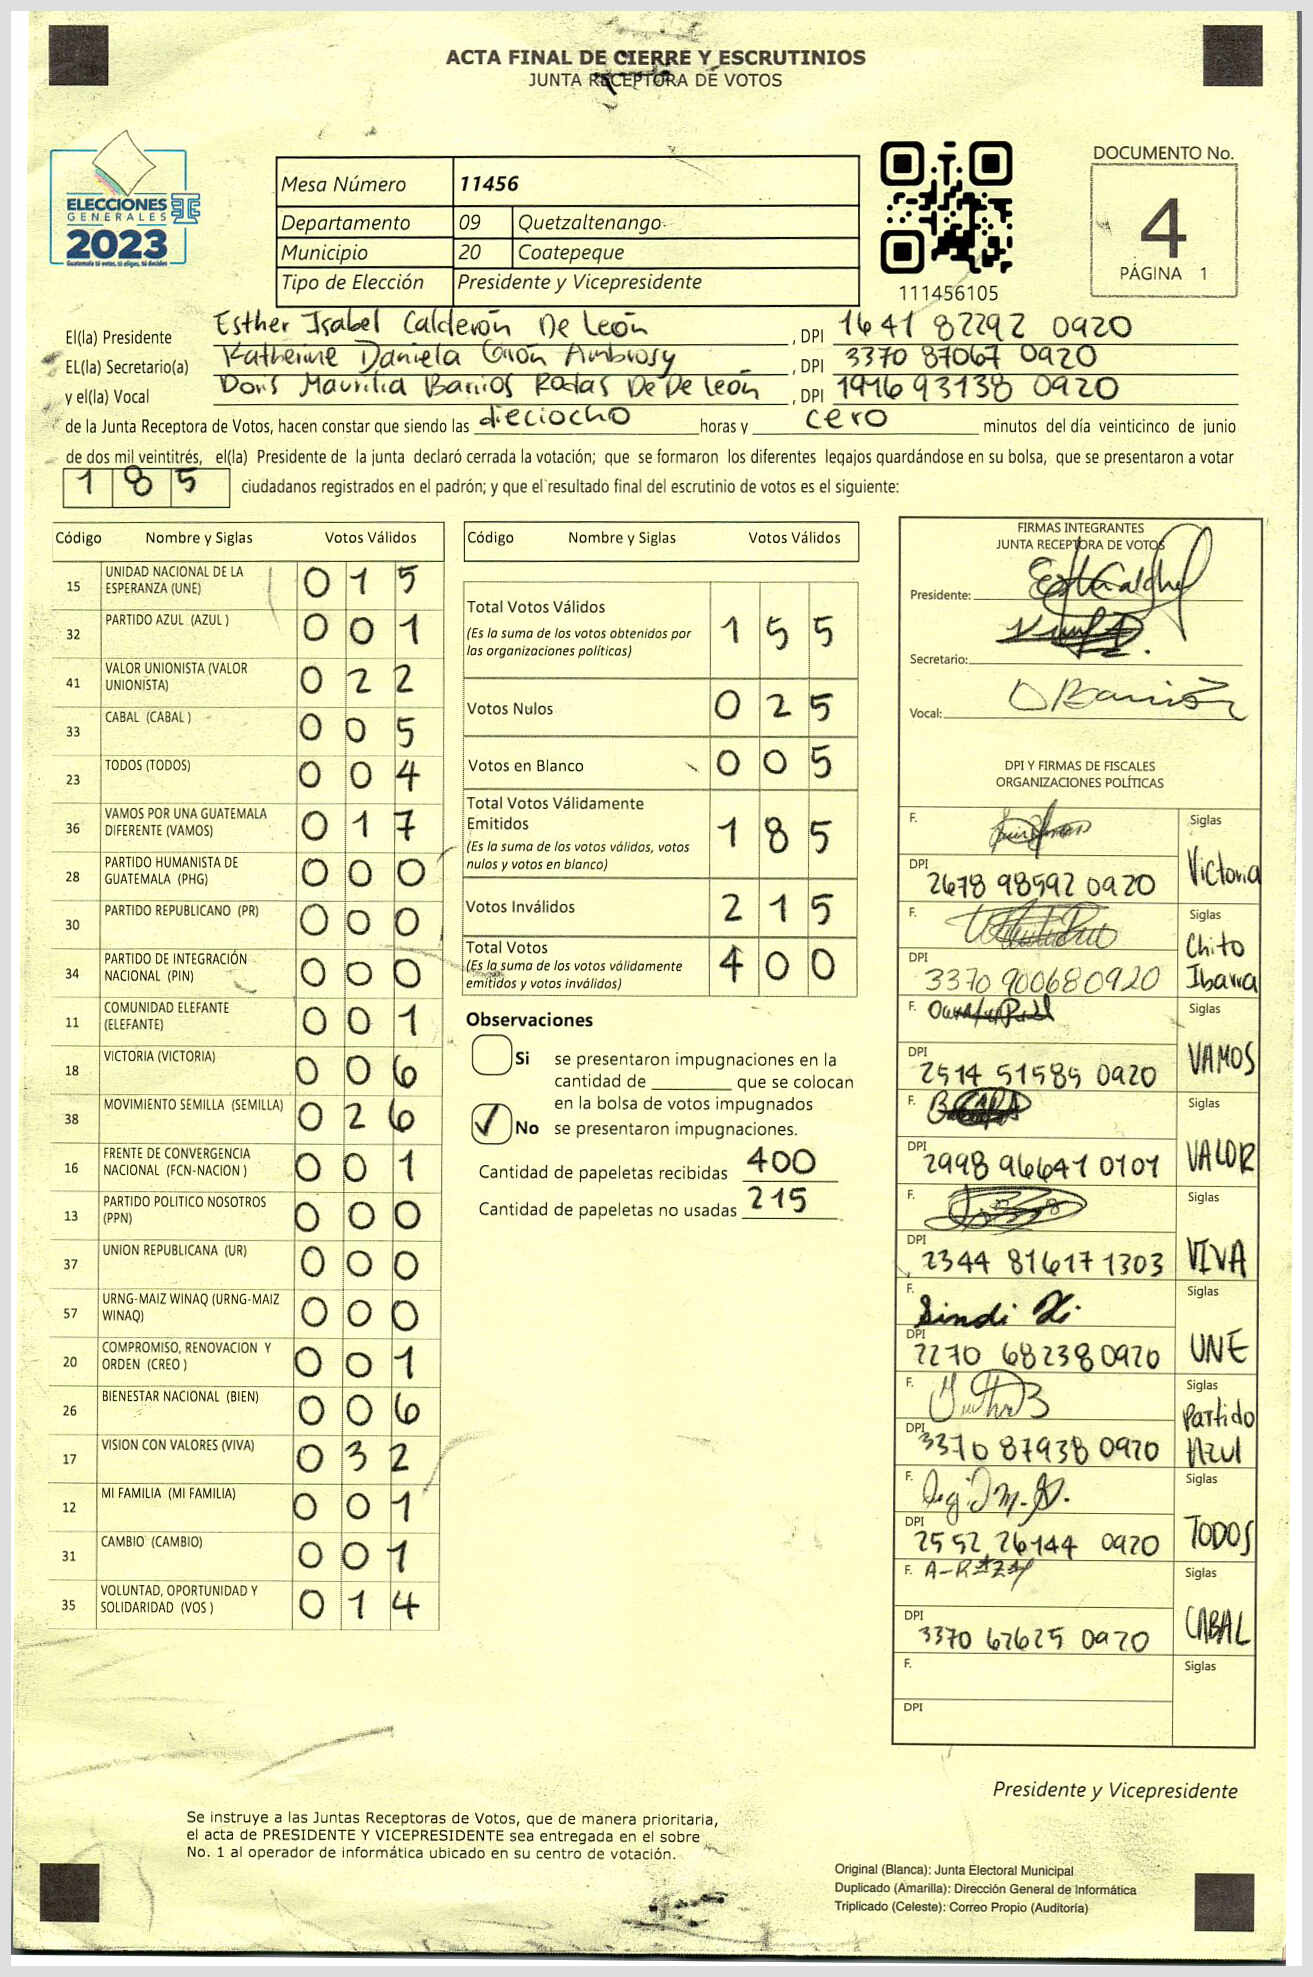 ACTA FINAL DE CIERRE Y ESCRUTINIOS
JUNTA RECEPTORA DE VOTOS
ELECCIONES
GENERALES
2023
Guatemala tú votas, tú eliges, tú decides
Mesa Número 11456
Departamento 09 Quetzaltenango
Municipio 20 Coatepeque
Tipo de Elección Presidente y Vicepresidente
111456105
DOCUMENTO No.
4
PÁGINA 1
El(la) Presidente Esther Isabel Calderón De León, DPI 1641 82292 0920
EL(la) Secretario(a) Katherine Daniela Girón Ambrosy, DPI 3370 87067 0920
y el(la) Vocal Doris Maurilia Barrios Rodas De De León, DPI 1916 93138 0920
de la Junta Receptora de Votos, hacen constar que siendo las dieciocho horas y cero minutos del día veinticinco de junio
de dos mil veintitrés, el(la) Presidente de la junta declaró cerrada la votación; que se formaron los diferentes legajos quardándose en su bolsa, que se presentaron a votar
185 ciudadanos registrados en el padrón; y que el resultado final del escrutinio de votos es el siguiente:
Código Nombre y Siglas Votos Válidos
15 UNIDAD NACIONAL DE LA ESPERANZA (UNE) 0 1 5
32 PARTIDO AZUL (AZUL ) 0 0 1
41 VALOR UNIONISTA (VALOR UNIONISTA) 0 2 2
33 CABAL (CABAL ) 0 0 5
23 TODOS (TODOS) 0 0 4
36 VAMOS POR UNA GUATEMALA DIFERENTE (VAMOS) 0 1 7
28 PARTIDO HUMANISTA DE GUATEMALA (PHG) 0 0 0
30 PARTIDO REPUBLICANO (PR) 0 0 0
34 PARTIDO DE INTEGRACIÓN NACIONAL (PIN) 0 0 0
11 COMUNIDAD ELEFANTE (ELEFANTE) 0 0 1
18 VICTORIA (VICTORIA) 0 0 6
38 MOVIMIENTO SEMILLA (SEMILLA) 0 2 6
16 FRENTE DE CONVERGENCIA NACIONAL (FCN-NACION ) 0 0 1
13 PARTIDO POLITICO NOSOTROS (PPN) 0 0 0
37 UNION REPUBLICANA (UR) 0 0 0
57 URNG-MAIZ WINAQ (URNG-MAIZ WINAQ) 0 0 0
20 COMPROMISO, RENOVACION Y ORDEN (CREO ) 0 0 1
26 BIENESTAR NACIONAL (BIEN) 0 0 6
17 VISION CON VALORES (VIVA) 0 3 2
12 MI FAMILIA (MI FAMILIA) 0 0 1
31 CAMBIO (CAMBIO) 0 0 1
35 VOLUNTAD, OPORTUNIDAD Y SOLIDARIDAD (VOS ) 0 1 4
Código Nombre y Siglas Votos Válidos
Total Votos Válidos 1 5 5
(Es la suma de los votos obtenidos por
las organizaciones políticas)
Votos Nulos 0 2 5
Votos en Blanco 0 0 5
Total Votos Válidamente
Emitidos 1 8 5
(Es la suma de los votos válidos, votos
nulos y votos en blanco)
Votos Inválidos 2 1 5
Total Votos 4 0 0
(Es la suma de los votos válidamente
emitidos y votos inválidos)
Observaciones
Si se presentaron impugnaciones en la
cantidad de ________ que se colocan
en la bolsa de votos impugnados
✓ No se presentaron impugnaciones.
Cantidad de papeletas recibidas 400
Cantidad de papeletas no usadas 215
FIRMAS INTEGRANTES
JUNTA RECEPTORA DE VOTOS
Presidente:
Secretario:
Vocal: O Barrios
DPI Y FIRMAS DE FISCALES
ORGANIZACIONES POLÍTICAS
F. Siglas
DPI 2678 98592 0920 Victoria
F. Siglas
DPI 3370 90068 0920 Chito Ibarra
F. Siglas
DPI 2514 51585 0920 VAMOS
F. Siglas
DPI 2998 96641 0101 VALOR
F. Siglas
DPI 2344 81617 1303 VIVA
F. Sindi Xi Siglas
DPI 2270 68238 0920 UNE
F. Siglas
DPI 3370 87938 0920 Partido Azul
F. Siglas
DPI 2552 26144 0920 TODOS
F. Siglas
DPI 3370 67625 0920 CABAL
F. Siglas
DPI
Presidente y Vicepresidente
Se instruye a las Juntas Receptoras de Votos, que de manera prioritaria,
el acta de PRESIDENTE Y VICEPRESIDENTE sea entregada en el sobre
No. 1 al operador de informática ubicado en su centro de votación.
Original (Blanca): Junta Electoral Municipal
Duplicado (Amarilla): Dirección General de Informática
Triplicado (Celeste): Correo Propio (Auditoría)